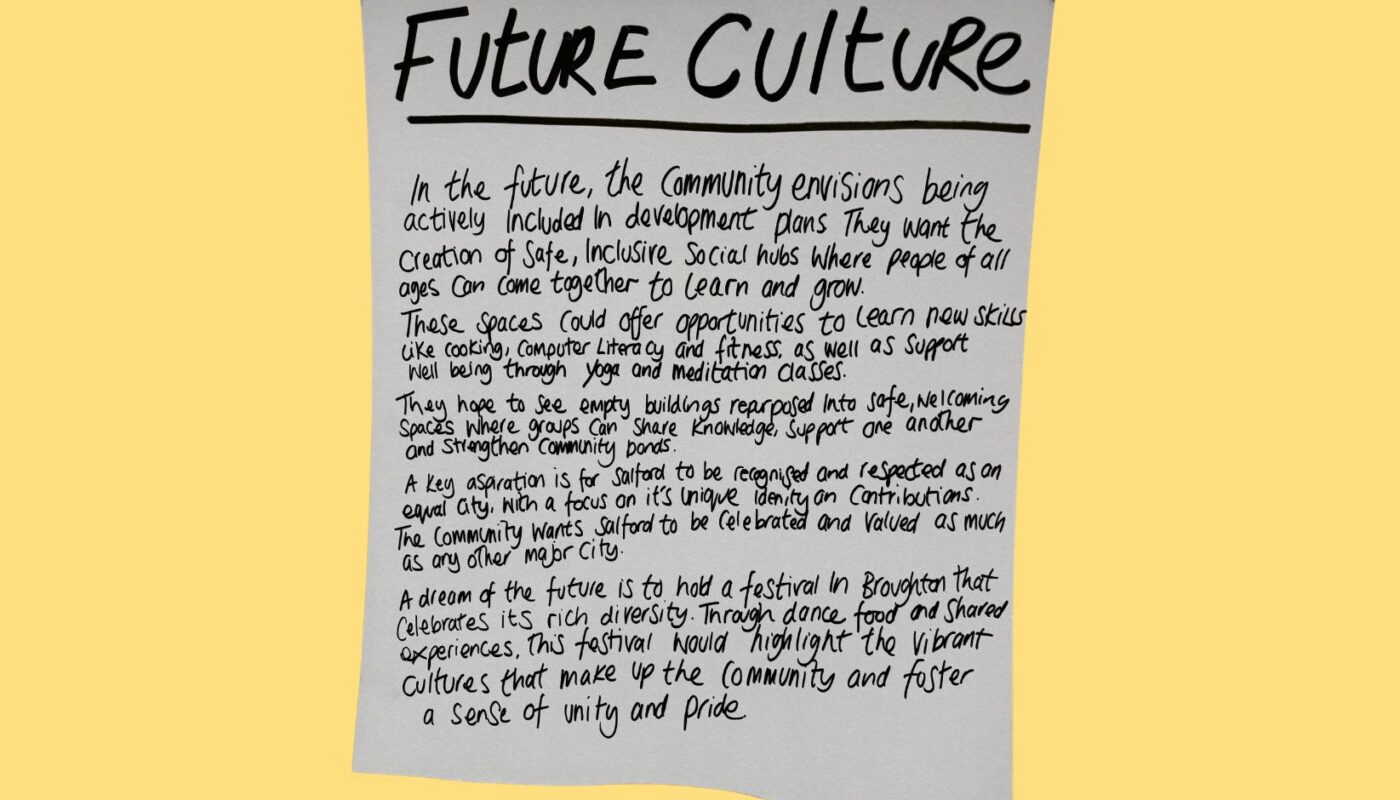 FUTURE CULTURE
In the future, the Community envisions being
actively Included In development plans They want the
Creation of Safe, Inclusive Social hubs Where people of all
ages Can Come together to Learn and grow.
These Spaces Could offer opportunities to Learn new Skills
Like cooking, Computer Literacy and fitness, as well as Support
Well being through Yoga and Meditation Classes.
They hope to See empty buildings repurposed Into Safe, Welcoming
Spaces Where groups Can Share Knowledge, Support One another
and Strengthen Community bonds.
A Key aspiration is for Salford to be recognised and respected as an
equal City, With a focus on it's Unique Idenity an Contributions.
The Community Wants Salford to be Celebrated and Valued as much
as any other major City.
A dream of the future is to hold a festival In Broughton that
Celebrates its rich diversity. Through dance food and Shared
experiences, This festival Would highlight the Vibrant
Cultures that make up the Community and foster
a Sense of unity and Pride.